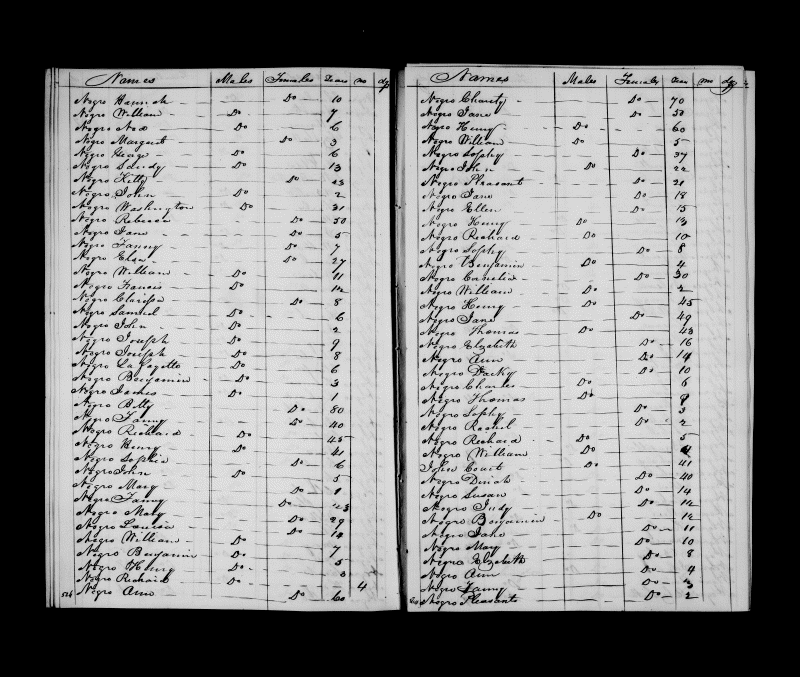 Names Males Females Years mo dys
Negro Hannah Do 10
Negro William Do 7
Negro Do 6
Negro Margaret Do 3
Negro George Do 6
Negro Sandy Do 13
Negro Kitty Do 23
Negro John Do 2
Negro Washington Do 31
Negro Rebecca Do 50
Negro Jane Do 5
Negro Fanny Do 7
Negro Do 27
Negro William Do 11
Negro Francis Do 12
Negro Clarissa Do 8
Negro Samuel Do 6
Negro John Do 2
Negro Joseph Do 9
Negro Joseph Do 8
Negro La Fayette Do 6
Negro Benjamin Do 3
Negro James Do 1
Negro Betty Do 80
Negro Fanny Do 40
Negro Richard Do 45
Negro Henry Do 41
Negro Sophia Do 6
Negro John Do 5
Negro Mary Do 1
Negro Fanny Do
Negro Mary Do 29
Negro Louisa Do 14
Negro William Do 7
Negro Benjamin Do 5
Negro Henry Do 3
Negro Richard Do 4
Negro Ann Do 60
Names Males Females Years mo dys
Negro Charity Do 70
Negro Jane Do 50
Negro Henry Do 60
Negro William Do 5
Negro Sophy Do 37
Negro John Do 22
Negro Pleasant Do 21
Negro Jane Do 18
Negro Ellen Do 15
Negro Henry Do 13
Negro Richard Do 10
Negro Sophy Do 8
Negro Benjamin Do 4
Negro Cornelia Do 30
Negro William Do 2
Negro Henry Do 45
Negro Jane Do 49
Negro Thomas Do 43
Negro Elizabeth Do 16
Negro Ann Do 14
Negro Darky Do 10
Negro Charles Do 6
Negro Thomas Do 8
Negro Sophy Do 3
Negro Rachel Do 2
Negro Richard Do 5
Negro William Do
John Court Do 41
Negro Do 40
Negro Susan Do 14
Negro Judy Do 12
Negro Benjamin Do 12
Negro Jane Do 11
Negro Mary Do 10
Negro Elizabeth Do 8
Negro Ann Do 4
Negro Fanny Do 3
Negro Pleasants Do 2